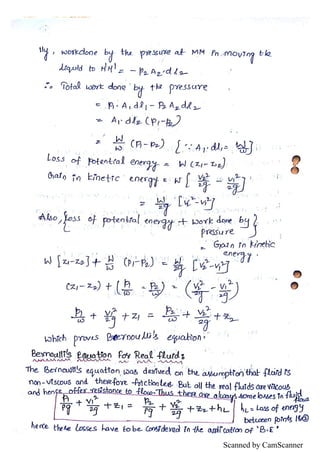 llly, workdone by the pressure at MM in moving the
liquid to M'M' = - P₂ A₂ · dl₂
∴ Total work done by the pressure
= P₁ · A₁ dl₁ - P₂ A₂ dl₂
= A₁ · dl₁ (P₁ - P₂)
= W/ω (P₁ - P₂) [∵ A₁ · dl₁ = W/ω]
Loss of potential energy = W (Z₁ - Z₂)
Gain in kinetic energy = W [V₂²/2g - V₁²/2g]
= W/2g [V₂² - V₁²]
Also, {Loss of potential energy + work done by
pressure}
= Gain in kinetic
energy.
W [Z₁ - Z₂] + W/ω (P₁ - P₂) = W/2g [V₂² - V₁²]
(Z₁ - Z₂) + (P₁/ω - P₂/ω) = (V₂²/2g - V₁²/2g)
P₁/ω + V₁²/2g + Z₁ = P₂/ω + V₂²/2g + Z₂
which proves Bernoulli's equation.
Bernoulli's Equation For Real fluid:
The Bernoulli's equation was derived on the assumption that fluid is
non-viscous and therefore frictionless. But all the real fluids are viscous
and hence offer resistance to flow. Thus there are always some losses in fluid flow
P₁/ρg + V₁²/2g + Z₁ = P₂/ρg + V₂²/2g + Z₂ + hL
hL = Loss of energy
between points 1&2
hence these losses have to be considered in the application of 'B.E'
Scanned by CamScanner